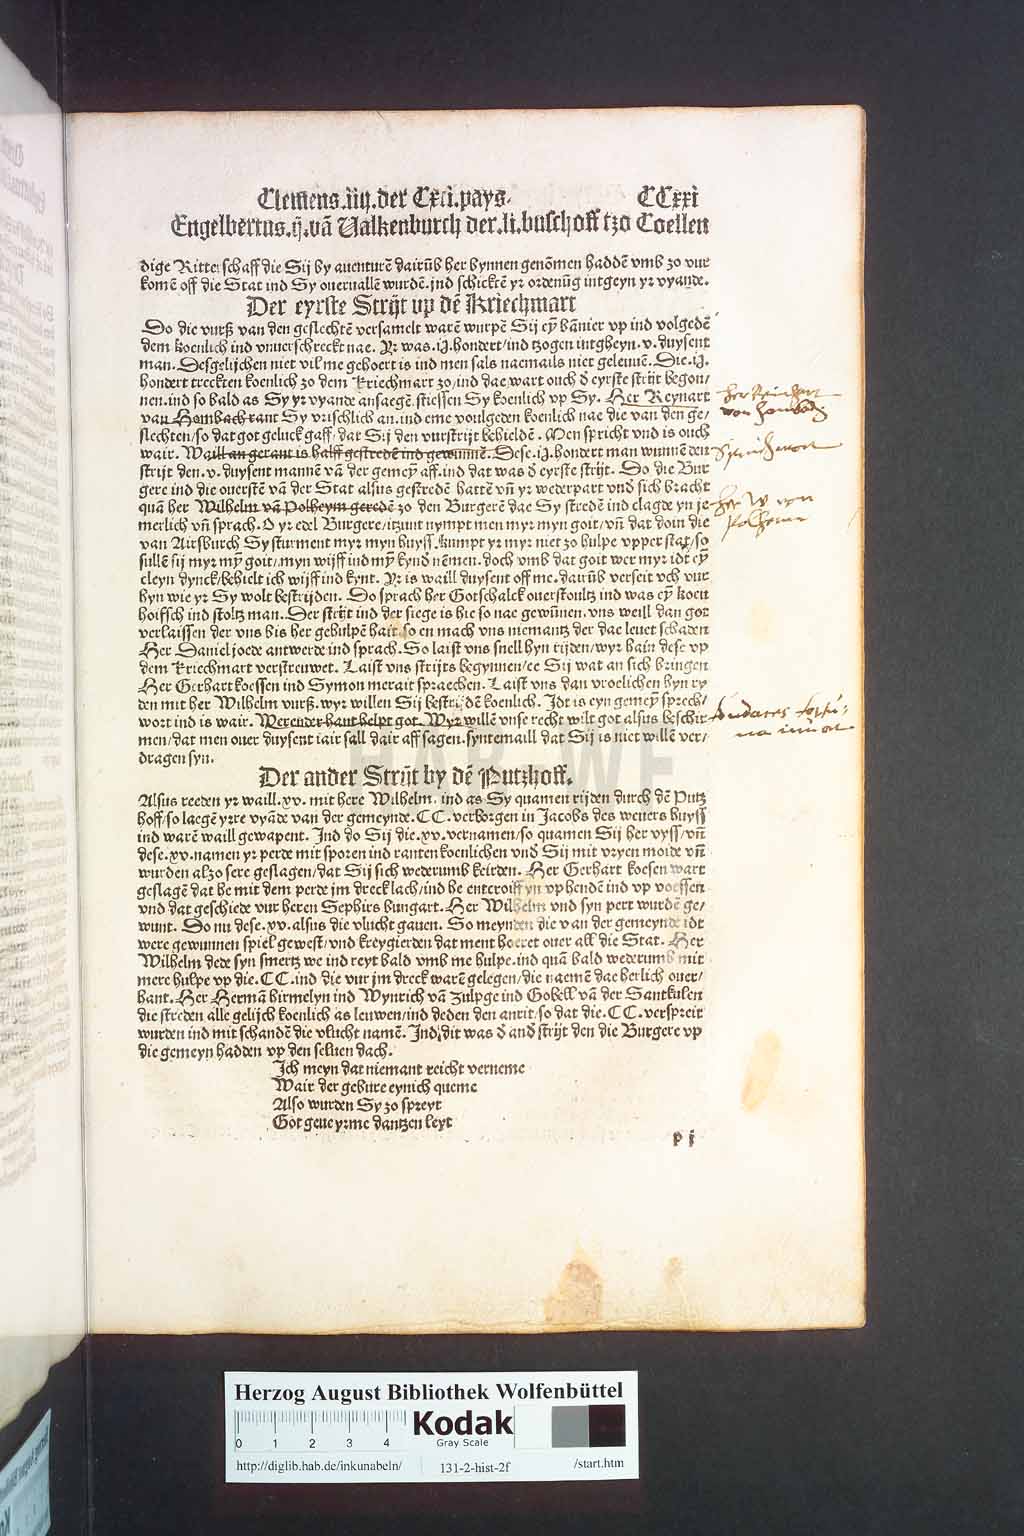 Clemens.iiij.der Cxci.pays. CCxxi
Engelbertus.ij.vā Valkenburch der.li.buschoff tzo Coellen
dige Ritterschaff die Sij by auenturē dairūb her bynnen genōmen haddē vmb zo vur
komē off die Stat ind Sy oueruallē wurdē.ind schicktē yr ordenūg intgeyn yr vyande.
Der eyrste Strijt vp dē Kriechmart
Do die vurß van den geslechtē versamelt warē wurpē Sij eȳ bānier vp ind volgedē
dem koenlich ind vnuerschreckt nae. Yr was.ij.hondert/ind tzogen intgheyn.v.duysent
man. Desgelijchen niet vil me gehoert is ind men sals naemails niet geleuuē. Die.ij.
hondert treckten koenlich zo dem Kriechmart zo/ind dae wart ouch d eyrste strijt begon/
nen.ind so bald as Sy yr vyande ansaegē stiessen Sy koenlich vp Sy. Her Reynart
van Hambach rant Sy vrischlich an.ind eme voulgeden koenlich nae die van den ge/
slechten/so dat got geluck gaff/dat Sij den vurstrijt behieldē. Men spricht vnd is ouch
wair. Waill angerant is halff gestredē ind gewūnē. Dese.ij.hondert man wunnē den
strijt den.v.duysent mannē vā der gemeȳ aff.ind dat was d eyrste strijt. Do die Bur
gere ind die ouerstē vā der Stat alsus gestredē hattē vn̄ yr wederpart vnd sich bracht
quā her Wilhelm vā Polheym geredē zo den Burgerē dae Sy stredē ind clagde yn je
merlich vn̄ sprach. O yr edel Burgere/itzunt nympt men myr myn goit/vn̄ dat doin die
van Airsburch Sy sturment myr myn huyss kumpt yr myr niet zo hulpe vpper stat/so
sullē sij myr mȳ goit/myn wijff ind mȳ kynd nēmen. doch vmb dat goit wer myr idt eȳ
cleyn dynck/behielt ich wijff ind kynt. Yr is waill duysent off me.dairūb verseit vch vur
hyn wie yr Sy wolt bestrijden. Do sprach her Gotschalck ouerstoultz ind was eȳ koen
hoifsch ind stoltz man. Der strijt ind der siege is hie so nae gewūnen. vns weill dan got
verlaissen der vns bis her gehulpē hait.so en mach vns niemantz der dae leuet schaden
Her Daniel joede antwerde ind sprach. So laist vns snell hyn rijden/wyr hain dese vp
dem Kriechmart verstreuwet. Laist vns strijts begynnen/ee Sij wat an sich bringen
Her Gerhart koessen ind Symon merait spraechen. Laist vns dan vroelichen hyn ry
den mit her Wilhelm vurß.wyr willen Sij bestrijdē koenlich. Idt is eyn gemeȳ sprech/
wort ind is wair. Werender hant helpt got. Wyr willē vnse recht wilt got alsus beschir
men/dat men ouer duysent iair sall dair aff sagen.syntemaill dat Sij is niet willē ver/
dragen syn.
Der ander Strijt by dē Putzhoff.
Alsus reeden yr waill.xv. mit here Wilhelm. ind as Sy quamen rijden durch dē Putz
hoff/so laegē yrre vyāde van der gemeynde.CC.verborgen in Jacobs des weuers huyss
ind warē waill gewapent. Ind do Sij die.xv.vernamen/so quamen Sij her vyss/vn̄
dese.xv.namen yr perde mit sporen ind ranten koenlichen vnd Sij mit vryen moide vn̄
wurden alzo sere geslagen/dat Sij sich wederumb keirden. Her Gerhart koesen wart
geslagē dat he mit dem perde jm dreck lach/ind he entcroiff yn vp hendē ind vp voessen
vnd dat geschiede vur heren Sephirs bungart. Her Wilhelm vnd syn pert wurdē ge/
wunt. Do nu dese.xv.alsus die vlucht gauen. So meynden die van der gemeynde idt
were gewunnen spiel gewest/vnd kreygierden dat ment hoeret ouer all die Stat. Her
Wilhelm dede syn smertz we ind reyt bald vmb me hulpe.ind quā bald wederumb mit
mere hulpe vp die.CC.ind die vur jm dreck warē gelegen/die naemē dae herlich ouer/
hant. Her Hermā birmelyn ind Wynrich vā Zulpge ind Gobell vā der Santkulen
die streden alle gelijch koenlich as leuwen/ind deden den anrit/so dat die.CC.verspreit
wurden ind mit schandē die vlucht namē. Ind dit was d and strijt den die Burgere vp
die gemeyn hadden vp den seluen dach.
Ich meyn dat niemant reicht verneme
Wair der gebure eynich queme
Also wurden Sy zo spreyt
Got geue yrme dantzen leyt
p j
her Reinhart
von Hambach
Sprichwort
her W von
Polheim
Audaces fortu-
na iuuat
HAB-WF
Herzog August Bibliothek Wolfenbüttel
0 1 2 3 4
Kodak
Gray Scale
http://diglib.hab.de/inkunabeln/ 131-2-hist-2f /start.htm